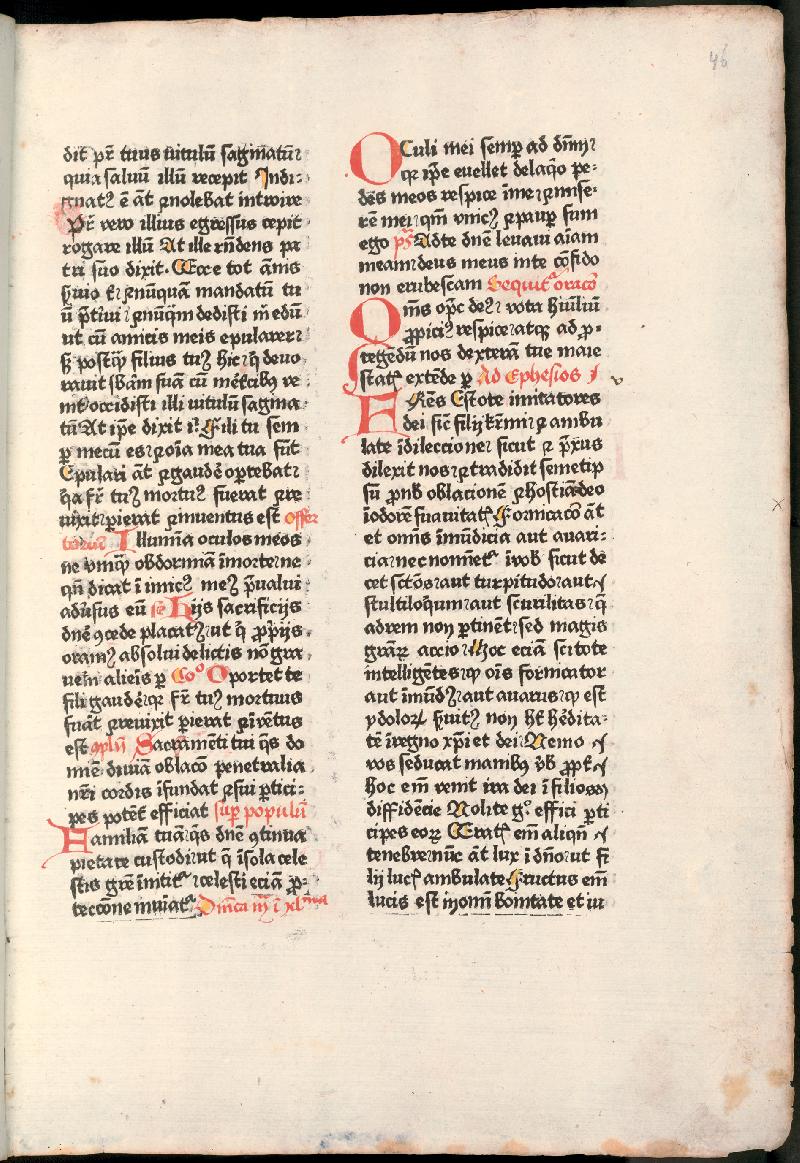 46
dit pr̄ tuus uitulū sagīnatū ⁊
quia saluū illū recepit Indi-
gnatꝰ ē āt ⁊ nolebat introire
Pr̄ vero illius egressus cepit
rogare illū At ille rn̄dens pa
tri suo dixit. Ecce tot ānis
ẜuio t̄ ⁊ nūquam mandatū tu
ū p̄t̄iui ⁊ nūqm̄ dedisti m̄ edū
ut cū amicis meis epularer ⁊
ẜ postqꝫ filius tuꝰ hic q̄ deuo
rauit sb̄am suā cū mēt̄cibꝰ ve
nit occidisti illi uitulū sagīna
tū At ip̄e dixit ī. Fili tu sem
ꝑ mecū es ⁊ oīa mea tua sūt
Epulari āt ⁊ gaudē oꝑtebat ⁊
ꝗa fr̄ tuꝰ mortuꝰ fuerat ⁊ re
uixit ꝑierat ⁊ inuentus est offer
torium Illumīa oculos meos
ne vmqꝫ obdormiā ī morte ne
qn̄ dicat īimicꝰ meꝰ p̄ualui
aduſus eū sec̄ Hijs sacrificijs
dn̄e ꝯcede placatꝰ ut q̄ ꝓprijs
oramꝰ absolui delictis nō gra
uem̄ alienis ꝑ Co° Oportet te
fili gaudē ⁊ qr fr̄ tuꝰ mortuus
fuāt ⁊ reuixit ꝑierat ⁊ īuētus
est ꝯplīi Sacramēti tui q̄s do
mīe diuīa oblac̄o penetralia
nr̄i cordis īfundat ⁊ sui ꝑtici-
pes potēt̄ efficiat sup̄ populū
Familiā tuā q̄s dn̄e ꝯtinua
pietate custodi ut q̄ ī sola cele
stis gr̄e īnitit̄ ⁊ celesti eciā ꝓ-
tecc̄one muniat̄ Dn̄ica iij ī xlma
Oculi mei semꝑ ad dn̄m ⁊
qr ip̄e euellet de laq̄o pe-
des meos respice ī me ⁊ mise-
rē mei qm̄ vnicꝰ ⁊ pauꝑ sum
ego ps̄ Ad te dn̄e leuaui aīam
meam deus meus in te cōfido
non erubescam Sequit̄ orac̄o
Om̄s op̄c deꝰ ⁊ vota hūiliū
ꝓpiciꝰ respice ⁊ atqꝫ ad ꝓ-
tegēdū nos dexterā tue maie
statꝭ extēde ꝑ Ad Ephesios
Fr̄es Estote imitatores
dei sic̄ filij kr̄mi ⁊ ambu
late ī dileccione ⁊ sicut ⁊ p̄xus
dilexit nos ⁊ tradidit semetip
sū pro nb̄ oblacionē ⁊ hostiā deo
ī odorē suauitatꝭ Fornicac̄o āt
et omīs īmūdicia aut auari-
cia ⁊ nec nom̄et̄ ī vob̄ sicut de
cet sc̄tōs ⁊ aut turpitudo ⁊ aut
stultiloqm̄ ⁊ aut scurilitas ⁊ q̄
ad rem non ꝑtinent ⁊ sed magis
grāꝝ accio ⁊ Hoc eciā scitote
intelligētes qꝫ oīs fornicator
aut īmūdꝰ ⁊ aut auarus ⁊ qꝫ est
ydoloꝝ ẜuitꝰ non ht̄ hēdita-
tē ī regno xp̄i et dei Nemo
vos seducat manibꝰ v̄b̄ ꝓpt̄
hoc em̄ venit ira dei ī filios
diffidēcie Nolite g° effici ꝑti
cipes eoꝝ Eratꝭ em̄ aliqn̄
tenebre ⁊ nūc āt lux ī dn̄o ⁊ ut fi
lij lucꝭ ambulate Fructus em̄
lucis est in om̄i bonitate et iu